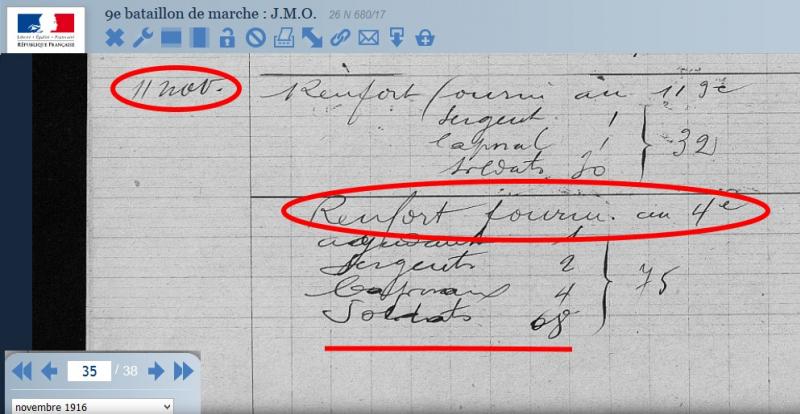 9e bataillon de marche : J.M.O. 26 N 680/17
Liberté • Égalité • Fraternité
RÉPUBLIQUE FRANÇAISE
11 nov. Renfort fourni au 119e
Sergent 1
Caporal 1
Soldats 30
32
Renfort fourni au 4e
adjudant 1
Sergents 2
Caporaux 4
Soldats 68
75
35 / 38
novembre 1916